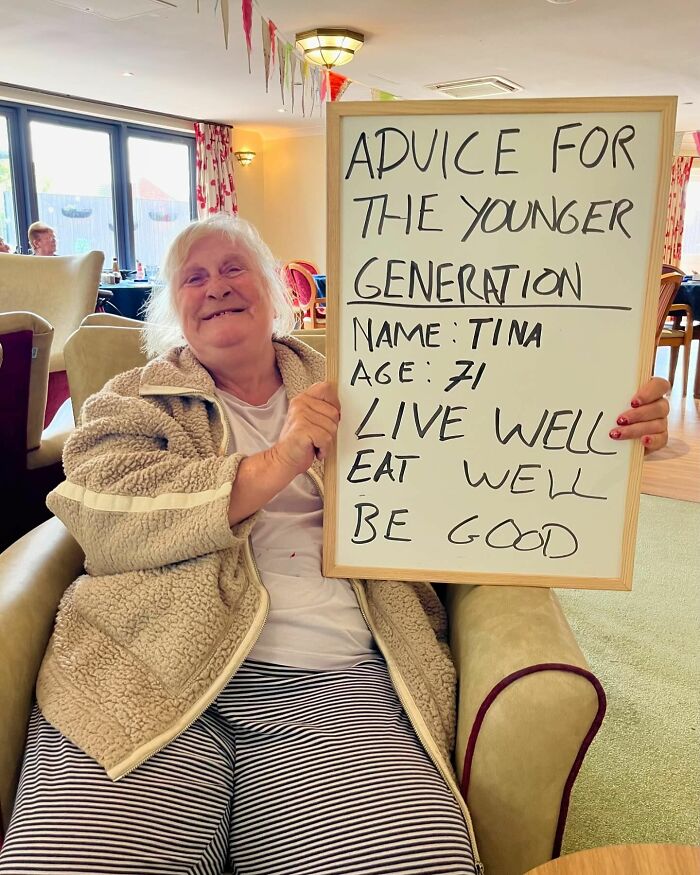 ADVICE FOR
THE YOUNGER
GENERATION
NAME: TINA
AGE: 71
LIVE WELL
EAT WELL
BE GOOD